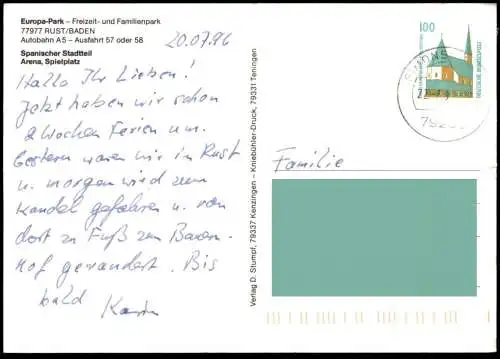 Europa-Park – Freizeit- und Familienpark
77977 RUST/BADEN
Autobahn A5 – Ausfahrt 57 oder 58
Spanischer Stadtteil
Arena, Spielplatz
20.07.96
Hallo Ihr Lieben!
Jetzt haben wir schon
2 Wochen Ferien um.
Gestern waren wir in Rust
u. morgen wird zum
Kandel gefahren u. von
dort zu Fuß zum
Hof gewandert. Bis
bald Karin
Verlag D. Stumpf, 79337 Kenzingen – Kniebühler-Druck, 79331 Teningen
100
DEUTSCHE BUNDESPOST
SIMONS
Familie